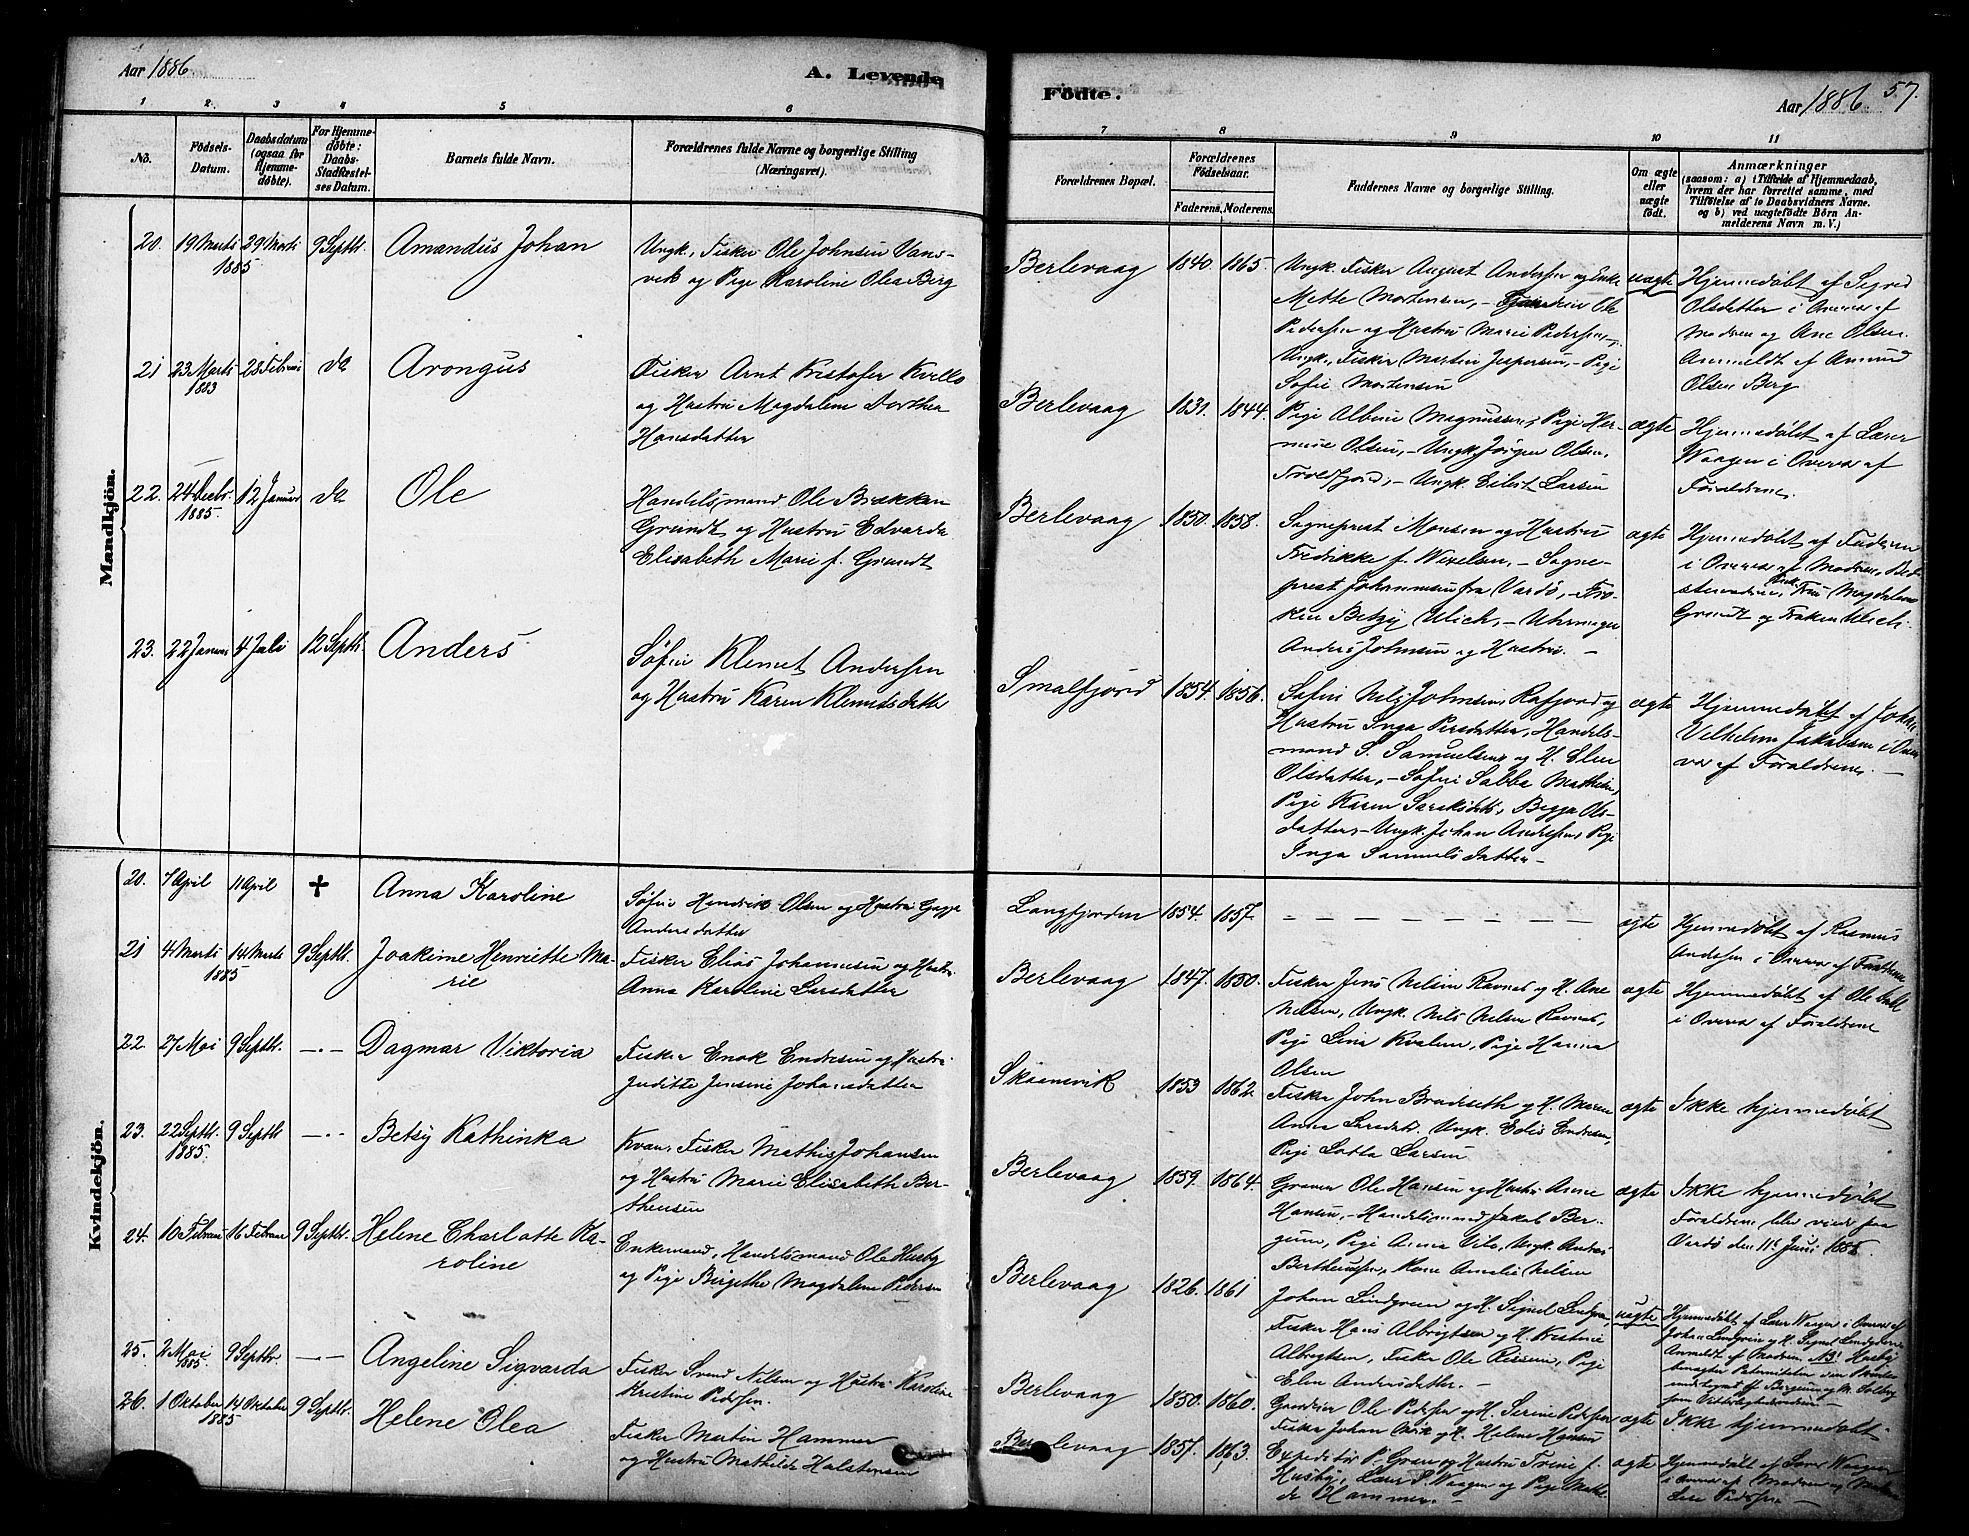 Aar 1886
A. Levende
1 2. 3 4 5 6
No.
Födsels-
Datum.
Daabsdatum
(ogsaa for
Hjemme-
døbte).
For Hjemme-
døbte:
Daabs-
Stadfæstel-
ses Datum.
Barnets fulde Navn.
Forældrenes fulde Navne og borgerlige Stilling
(Næringsvei).
Mandkjön.
20. 19 Marts 29 Marts 9 Septbr. Amandus Johan
1885
Ungk., Fisker Ole Johnsen Vans-
vik og Pige Karoline Olea Berg
21 23 Marts 28 Februar do Arongus
1883
Fisker Arnt Kristofer Kvello
og Hustru Magdalene Dorthea
Hansdatter
22. 24 Decbr. 12 Januar do Ole
1885.
Handelsmand Ole Brakkan
Grundt og Hustru Edvarda
Elisabeth Marie f. Grundt
23. 22 Januar 4 Juli 12 Septbr. Anders
Søfin Klemet Andersen
og Hustru Karen Klemetsdatter
Kvindekjön.
20. 7 April 11 April + Anna Karoline
Søfin Hendrik Olsen og Hustru
Andersdatter
21 4 Marts 14 Marts 9 Septbr. Joakime Henriette Ma-
1885 rie
Fisker Elias Johannesen og Hustru
Anna Karoline Larsdatter
22. 27 Mai 9 Septbr. —·— Dagmar Viktoria
Fisker Enok Endresen og Hustru
Juditte Jensine Johansdatter
23. 22 Septbr. 9 Septbr —·— Betsy Kathinka
1885.
Kvan, Fisker Mathis Johansen
og Hustru Marie Elisabeth Ber-
thensen
24. 10 Februar 16 Februar 9 Septbr. Helene Charlotte Ka-
roline
Enkemand, Handelsmand Ole Husby
og Pige Birgithe Magdalene Pedersen
25. 2 Mai 9 Septbr —— Angeline Sigvarda
1885.
Fisker Svend Nilsen og Hustru Karoline
Kristine Pedersen.
26. 1 Oktober 14 Oktober 9 Septbr. Helene Olea
1885
Fisker Martin Hammer
og Hustru Mathilde Halstensen
Födte.
Aar 1886 57.
7 8 9 10 11
Forældrenes Bopæl.
Forældrenes
Fødselsaar.
Faderens. Moderens.
Faddernes Navne og borgerlige Stilling.
Om ægte
eller
uægte
født.
Anmærkninger
(saasom: a) i Tilfælde af Hjemmedaab,
hvem der har forrettet samme, med
Tilføielse af to Daabsvidners Navne.
og b) ved uægtefødte Børn An-
melderens Navn m. V.)
Berlevaag 1840 1865.
Ungk. Fisker August Andersen og Enke
Mette Mortensen, – Ole
Pedersen og Hustru Marie Pedersen,
Ungk., Fisker Martin Jespersen, – Pige
Sofie Mortensen
uægte
Hjemmedøbt af Sigrid
Olsdatter i Overvær af
Modren og Ane Olsen.
Anmeldt af Amund
Olsen Berg
Berlevaag 1831. 1844.
Pige Albine Magnussen, Pige Her-
mine Olsen, – Ungk. Jørgen Olsen,
Troldfjord, – Ungk. Eilert Larsen
ægte
Hjemmedøbt af Lærer
Waagen i Overvær af
Forældrene.
Berlevaag 1850. 1858.
Sogneprest Monsen og Hustru
Fredrikke f. Wexelsen, – Sogne-
prest Johannesen fra Vardø, – Frø-
ken Betsy Ulich, – Uhrmager
Anders Johnsen og Hustru. –
ægte
Hjemmedøbt af Faderen
i Overvær af Modren, Bed-
stemoderen, Fru Magdalene
Grundt og Frøken Ulich.
Smalfjord 1854. 1856.
Søfin Nils Johnsen Rafjord og
Hustru Inga Persdatter, Handels-
mand S. Samuelsen og H. Elen
Olsdatter, – Søfin Sabba Mathisen,
Pige Karen , Begga Ols-
datter – Ungk. Johan Andersen, Pige
Inga Samuelsdatter –
ægte
Hjemmedøbt af Johan
Vilhelm Jakobsen i Over-
vær af Forældrene. —
Langfjorden 1854. 1857. – – – – – – – – – ægte
Hjemmedøbt af Rasmus
Andersen i Overvær af Forældrene
Berlevaag 1847. 1850.
Fisker Jens Nilsen Ravnas og H. Ane
Nilsen, Ungk. Nils Nilsen Ravnas,
Pige Lina Kvalem, Pige Hanna
Olsen
ægte
Hjemmedøbt af Ole
i Overvær af Forældrene
Skaanevik 1853 1862.
Fisker John Bradseth og H. Maren
Anna Larsdtr. Ungk. Edis Endresen,
Pige Lotta Larsen
ægte
Ikke hjemmedøbt
Berlevaag 1859. 1864.
Graver Ole Hansen og Hustru Anne
Hansen, – Handelsmand Jakob Ber-
gum, Pige Anna Vilo, Ungk. Andreas
Berthensen, Kone Amalie Nilsen
ægte
Ikke hjemmedøbt
Forældrene blev viede paa
Vardø den 11te Juni 1885.
Berlevaag 1826. 1861
Johan Lindgren og H. Signel Lindgren,
Fisker Hans Albrigtsen og H. Kristine
Albrigtsen, Fisker Ole Rissen, Pige
Elen Andersdatter. –
uægte
Hjemmedøbt af Lærer Waagen i Overvær af
Johan Lindgren og H. Signel Lindgren.
Anmeldt af Modren. NB! Husby
Berlevaag 1850. 1860.
Ole Pedersen og H. Serine Pedersen
Fisker Johan og H. Helene Hansen
ægte
Ikke hjemmedøbt
Berlevaag 1857. 1863.
Expeditør P. Gran og Hustru Trine f.
Husby, Lærer P. Waagen og Pige Mathil-
de Hammer. –
ægte
Hjemmedøbt af Lærer Waagen
i Overvær af Modren og
Pedersen –